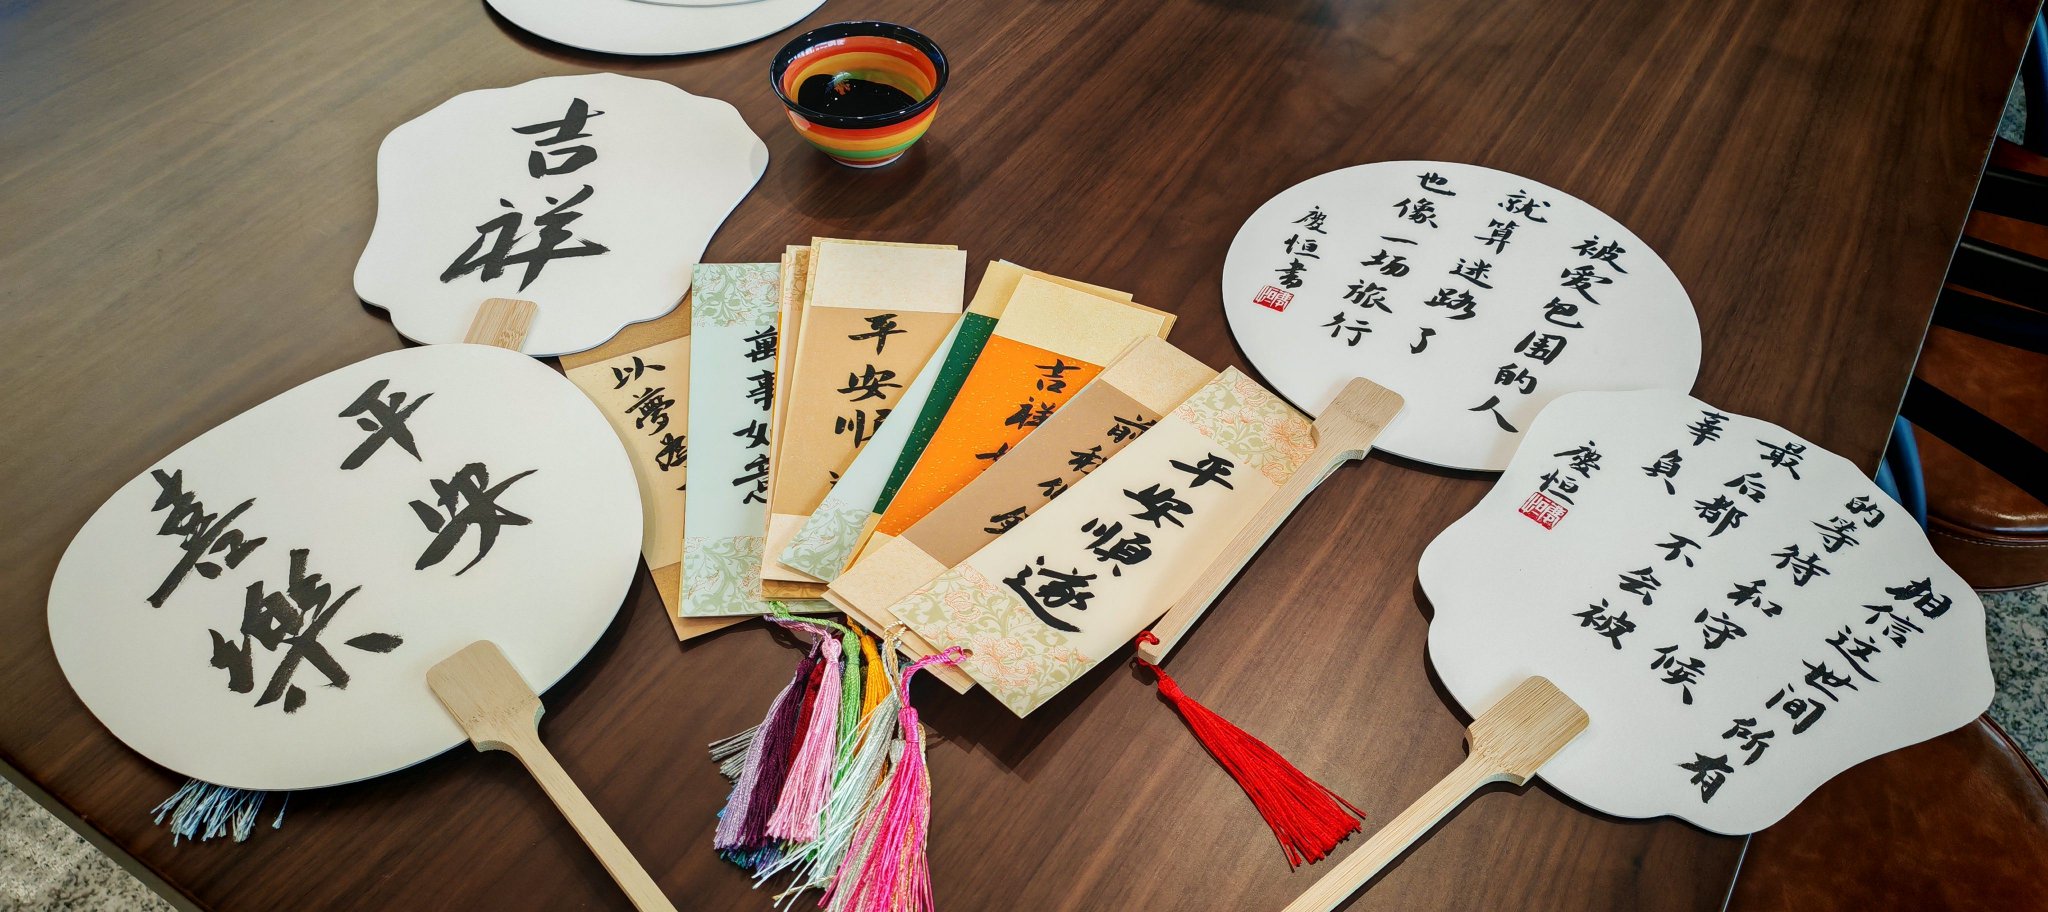 吉祥
平安
喜樂
以夢為
萬事如意
平安順
吉祥
前程似錦
平安順遂
被爱包围的人
就算迷路了
也像一场旅行
慶恒书
相信这世间所有
的等待和守候
最后都不会被
辜負
慶恒